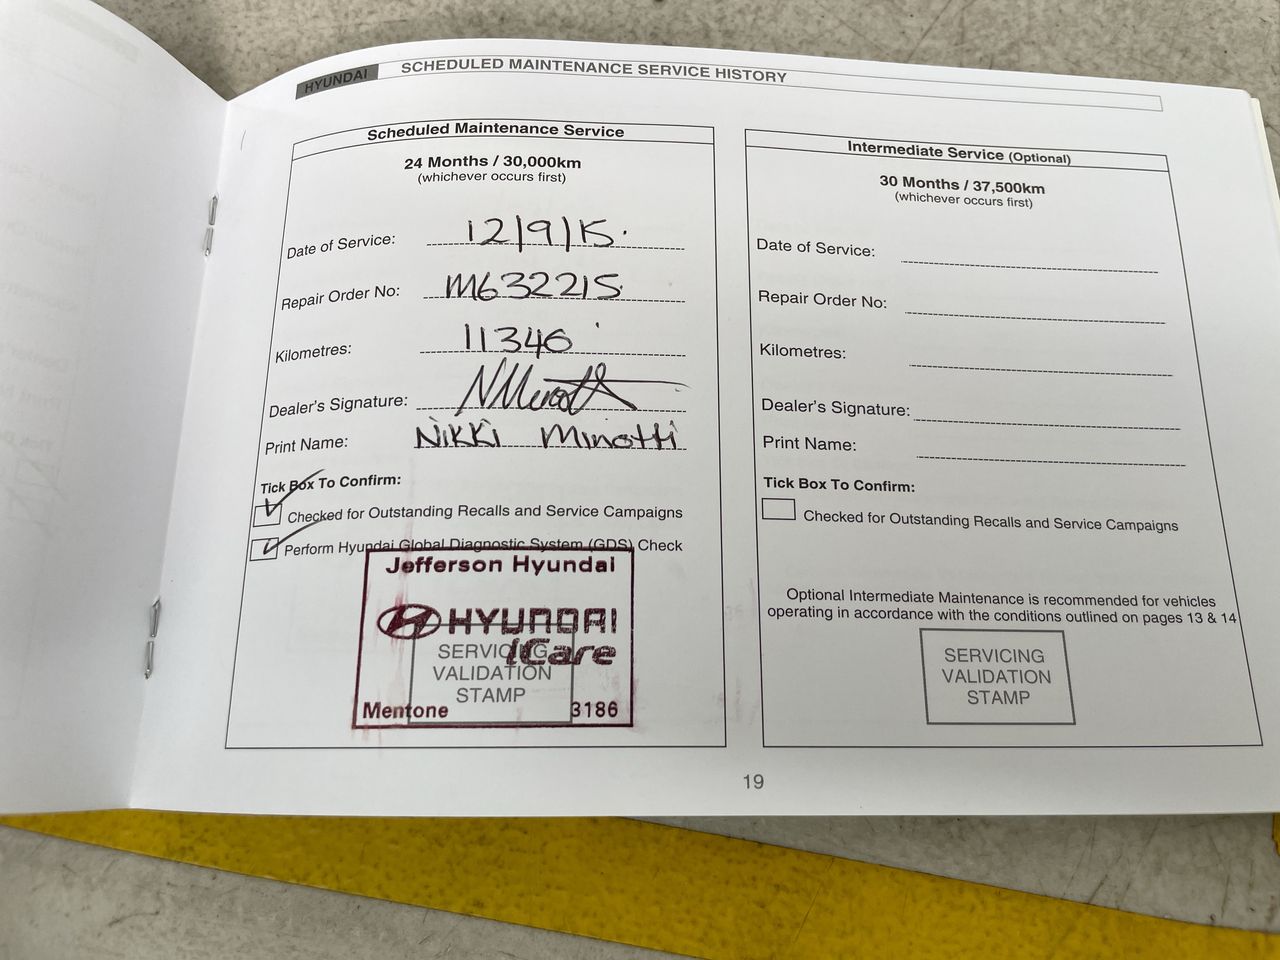 HYUNDAI SCHEDULED MAINTENANCE SERVICE HISTORY
Scheduled Maintenance Service
24 Months / 30,000km
(whichever occurs first)
Date of Service: 12/9/15.
Repair Order No: M632215
Kilometres: 11346
Dealer's Signature: NMinotti
Print Name: Nikki Minotti
Tick Box To Confirm:
Checked for Outstanding Recalls and Service Campaigns
Perform Hyundai Global Diagnostic System (GDS) Check
Jefferson Hyundai
HYUNDAI
iCare
SERVICING
VALIDATION
STAMP
Mentone 3186
Intermediate Service (Optional)
30 Months / 37,500km
(whichever occurs first)
Date of Service:
Repair Order No:
Kilometres:
Dealer's Signature:
Print Name:
Tick Box To Confirm:
Checked for Outstanding Recalls and Service Campaigns
Optional Intermediate Maintenance is recommended for vehicles
operating in accordance with the conditions outlined on pages 13 & 14
SERVICING
VALIDATION
STAMP
19